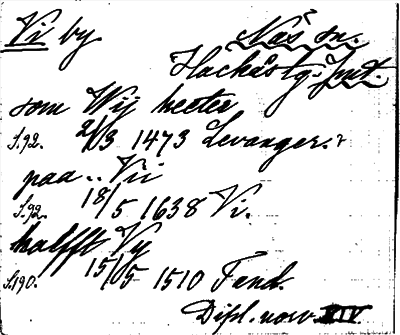 Vi by Näs sn.
Hackås tg. Jmt.
som Wij heeter
S.92. 2/3 1473 Levanger.?
paa .. Vii
S.92. 18/5 1638 Vi.
halfft Vy
S.190. 15/5 1510 Fend.
Dipl. norv. XIV